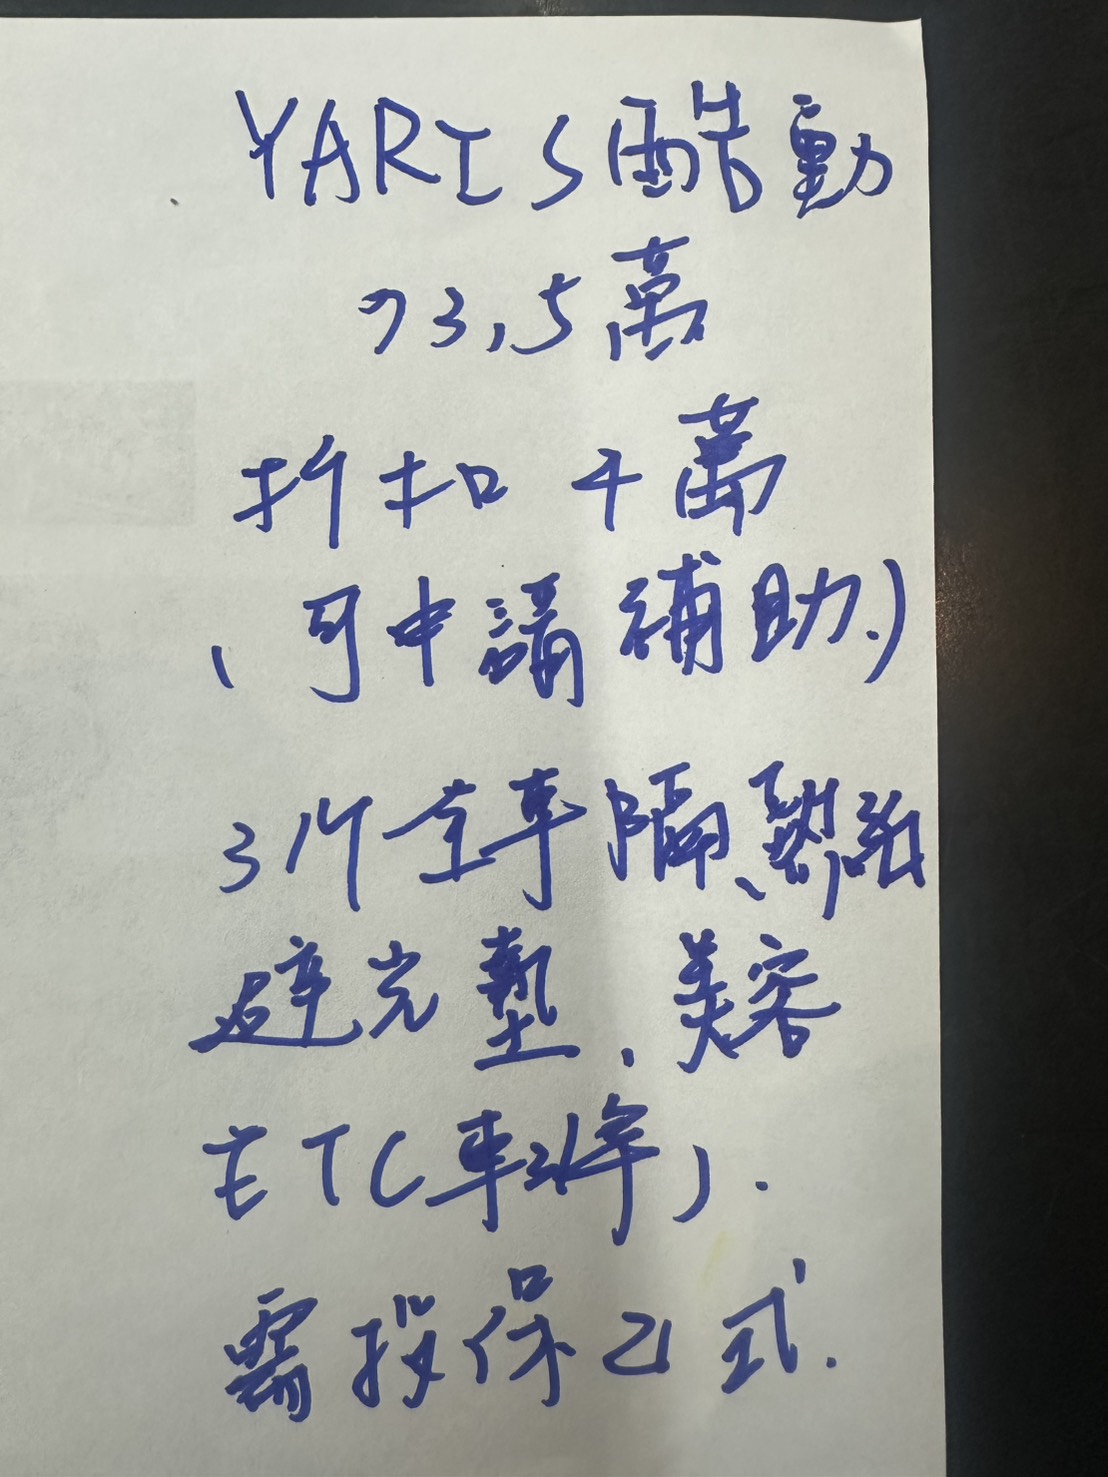 YARIS酷動
73,5萬
折扣 4萬
(可申請補助.)
3M 全車隔熱紙
避光墊.美容
ETC車班).
需投保乙式.